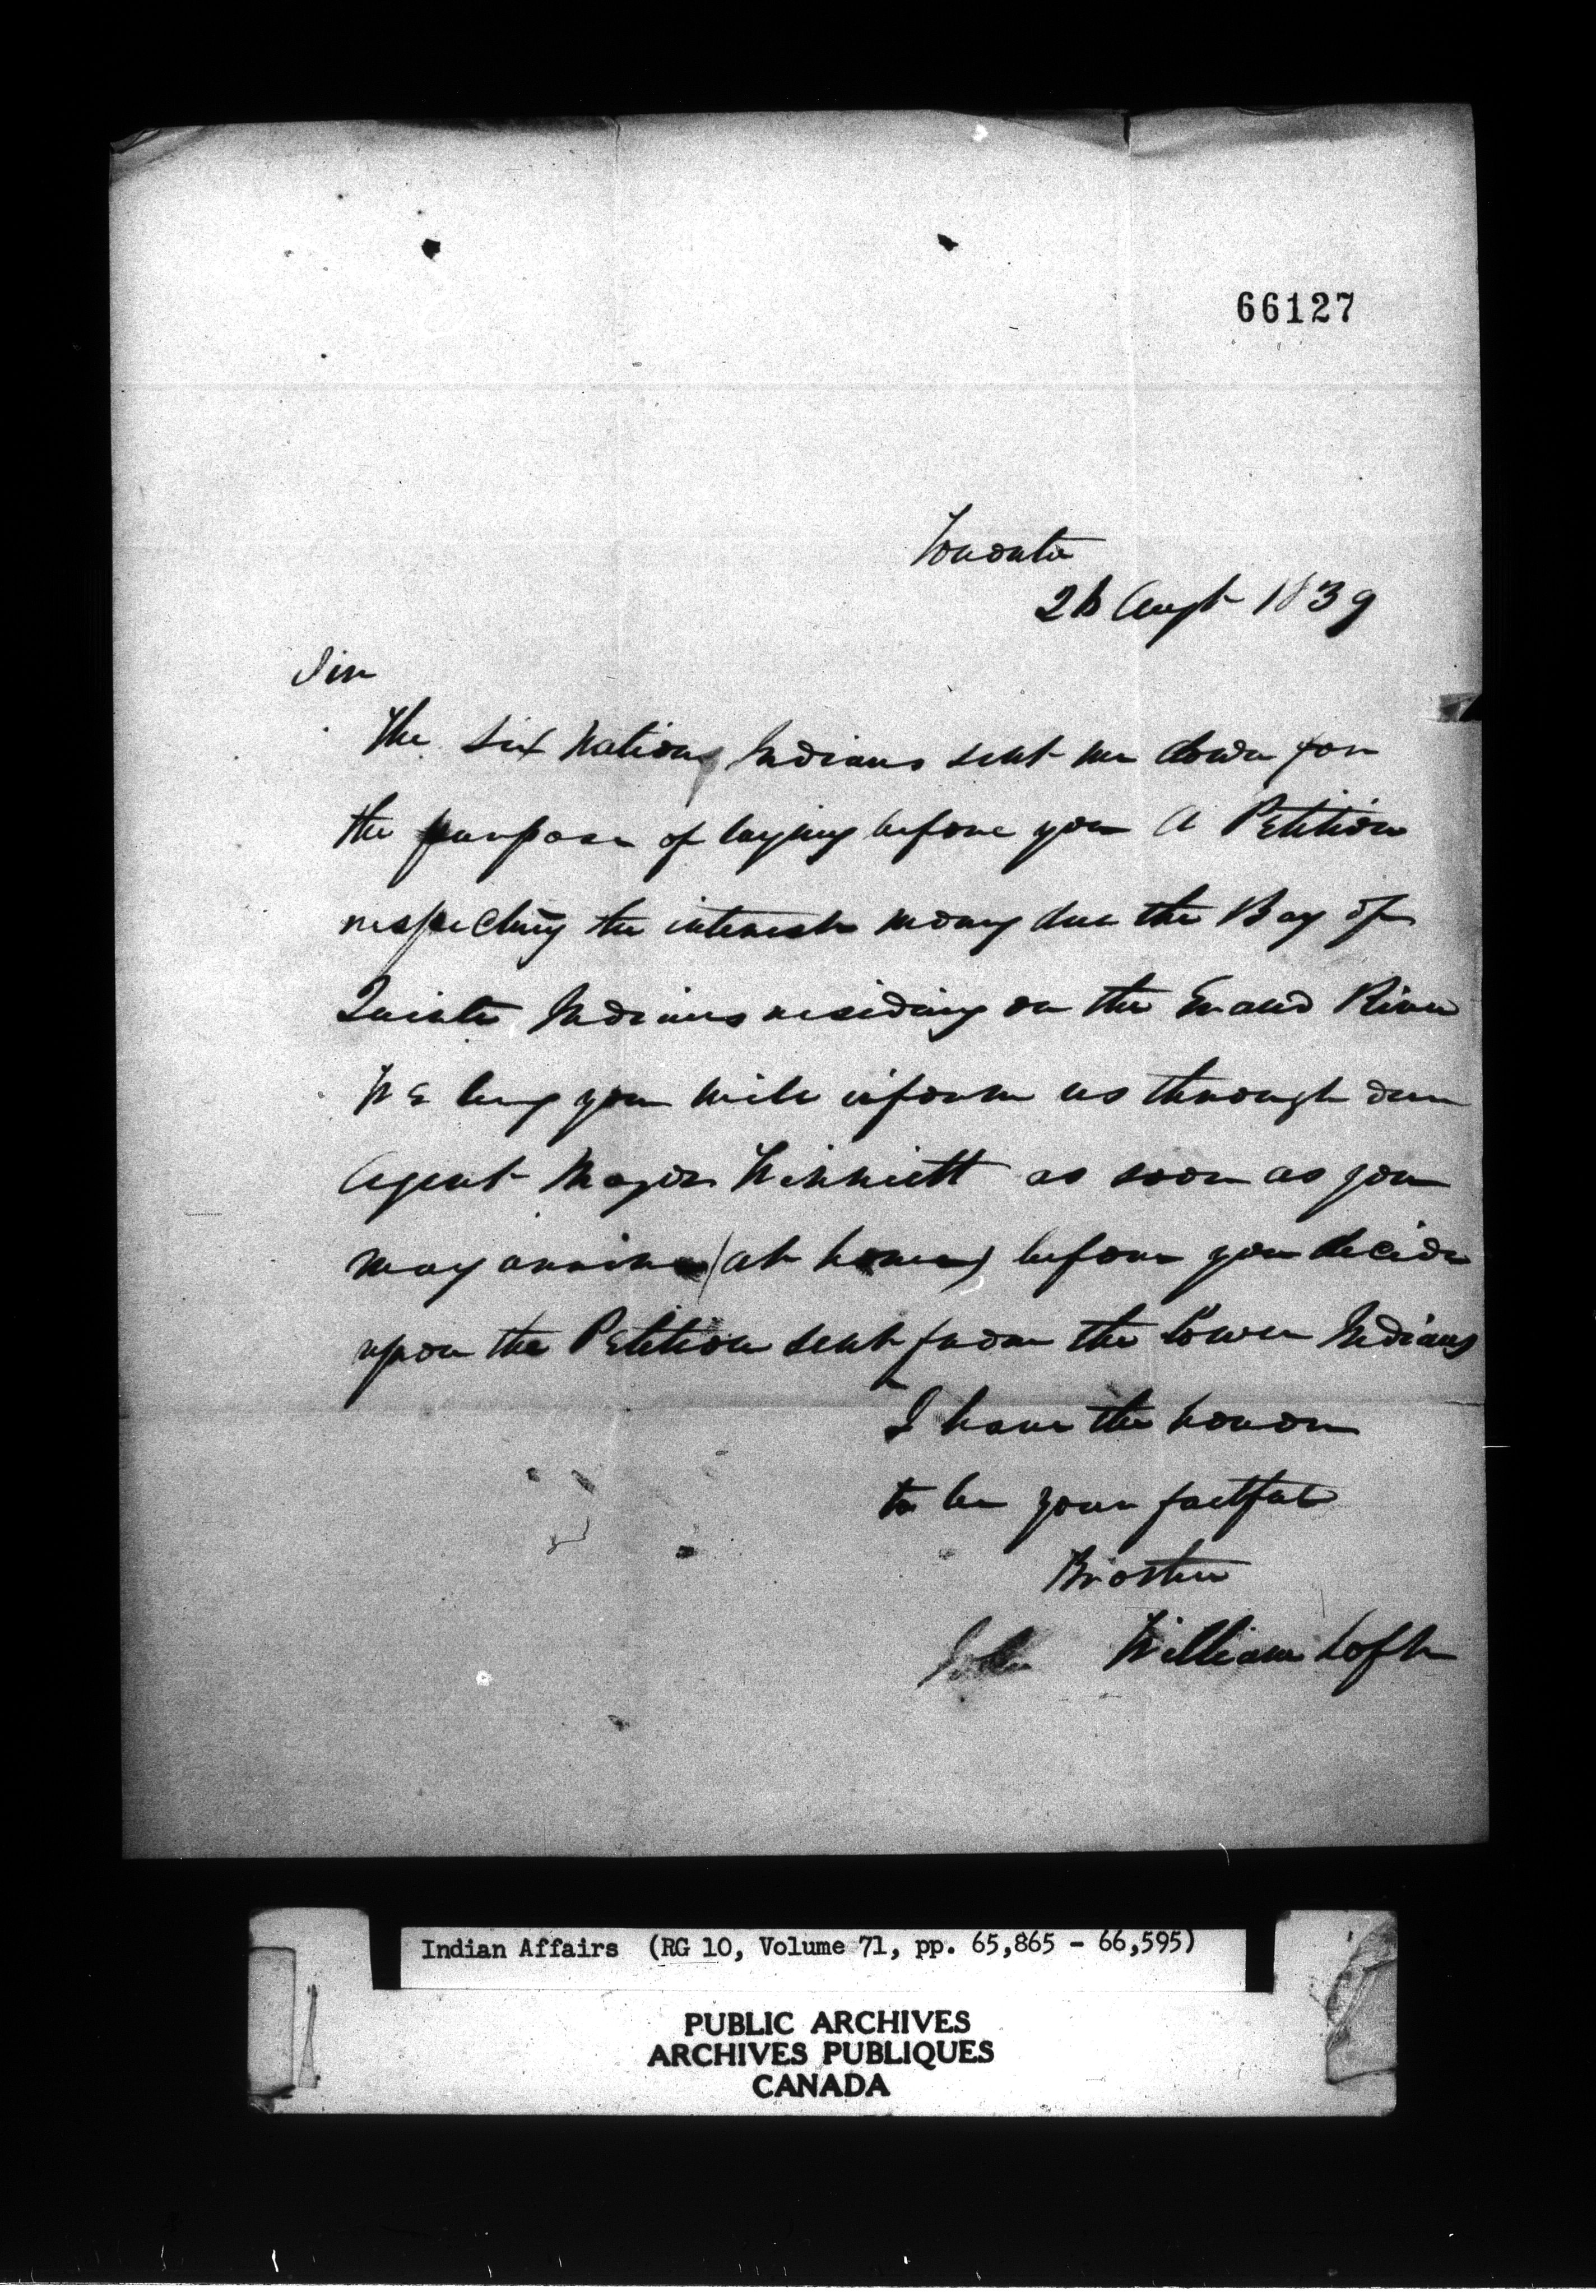 66127
Toronto
26 Augt 1839
Sir
The Six Nations Indians sent me down for
the purpose of laying before you A Petition
respecting the interest money due the Bay of
Quinte Indians residing on the Grand River
WE beg you will inform us through our
Agent Major Winniett as soon as you
may arrive (at home) before you decide
upon the PEtition sent from the Lower Indians
I have the honor
to be your faitful
Brother
John William Loft
Indian Affairs (RG 10, Volume 71, pp. 65,865 - 66,595)
PUBLIC ARCHIVES
ARCHIVES PUBLIQUES
CANADA